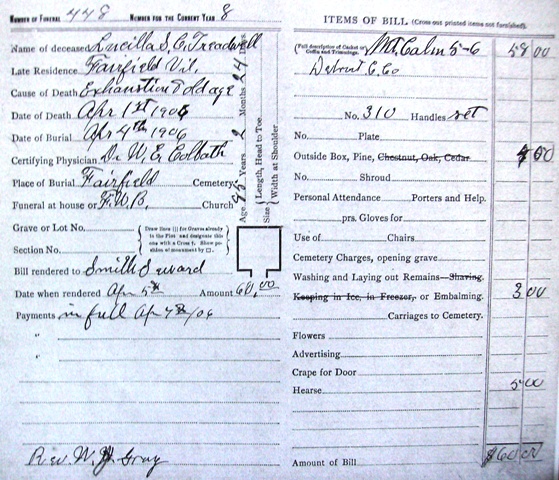 NUMBER OF FUNERAL 448 NUMBER FOR THE CURRENT YEAR 8
Name of deceased Lucilla S. C. Treadwell
Late Residence Fairfield Vil.
Cause of Death Exhaustion & old age
Date of Death Apr 1st 1906
Date of Burial Apr 4th 1906
Certifying Physician Dr W E Colbath
Place of Burial Fairfield Cemetery
Funeral at house or F. W. B. Church
Age 95 Years 2 Months 24 Days.
Size { Length, Head to Toe.
Width at Shoulder
Grave or Lot No.
Section No.
Draw lines [ ] for Graves already
in the Plot and designate this
one with a Cross †. Show position
of monument by □.
Bill rendered to Smith Seward
Date when rendered Apr 5th Amount 60.00
Payments in full Apr 7th/06
"
"
Rev. W. H. Gray
ITEMS OF BILL (Cross out printed items not furnished.)
(Full description of Casket or Coffin and Trimmings. Mt. Calm 5-6 58 00
Detroit C. Co
No. 310 Handles set
No. Plate
Outside Box, Pine, Chestnut, Oak, Cedar
No. Shroud
Personal Attendance Porters and Help.
prs. Gloves for
Use of Chairs
Cemetery Charges, opening grave
Washing and Laying out Remains—Shaving.
Keeping in Ice, in Freezer, or Embalming. 3 00
Carriages to Cemetery.
Flowers
Advertising
Crape for Door
Hearse 5 00
Amount of Bill $60 00